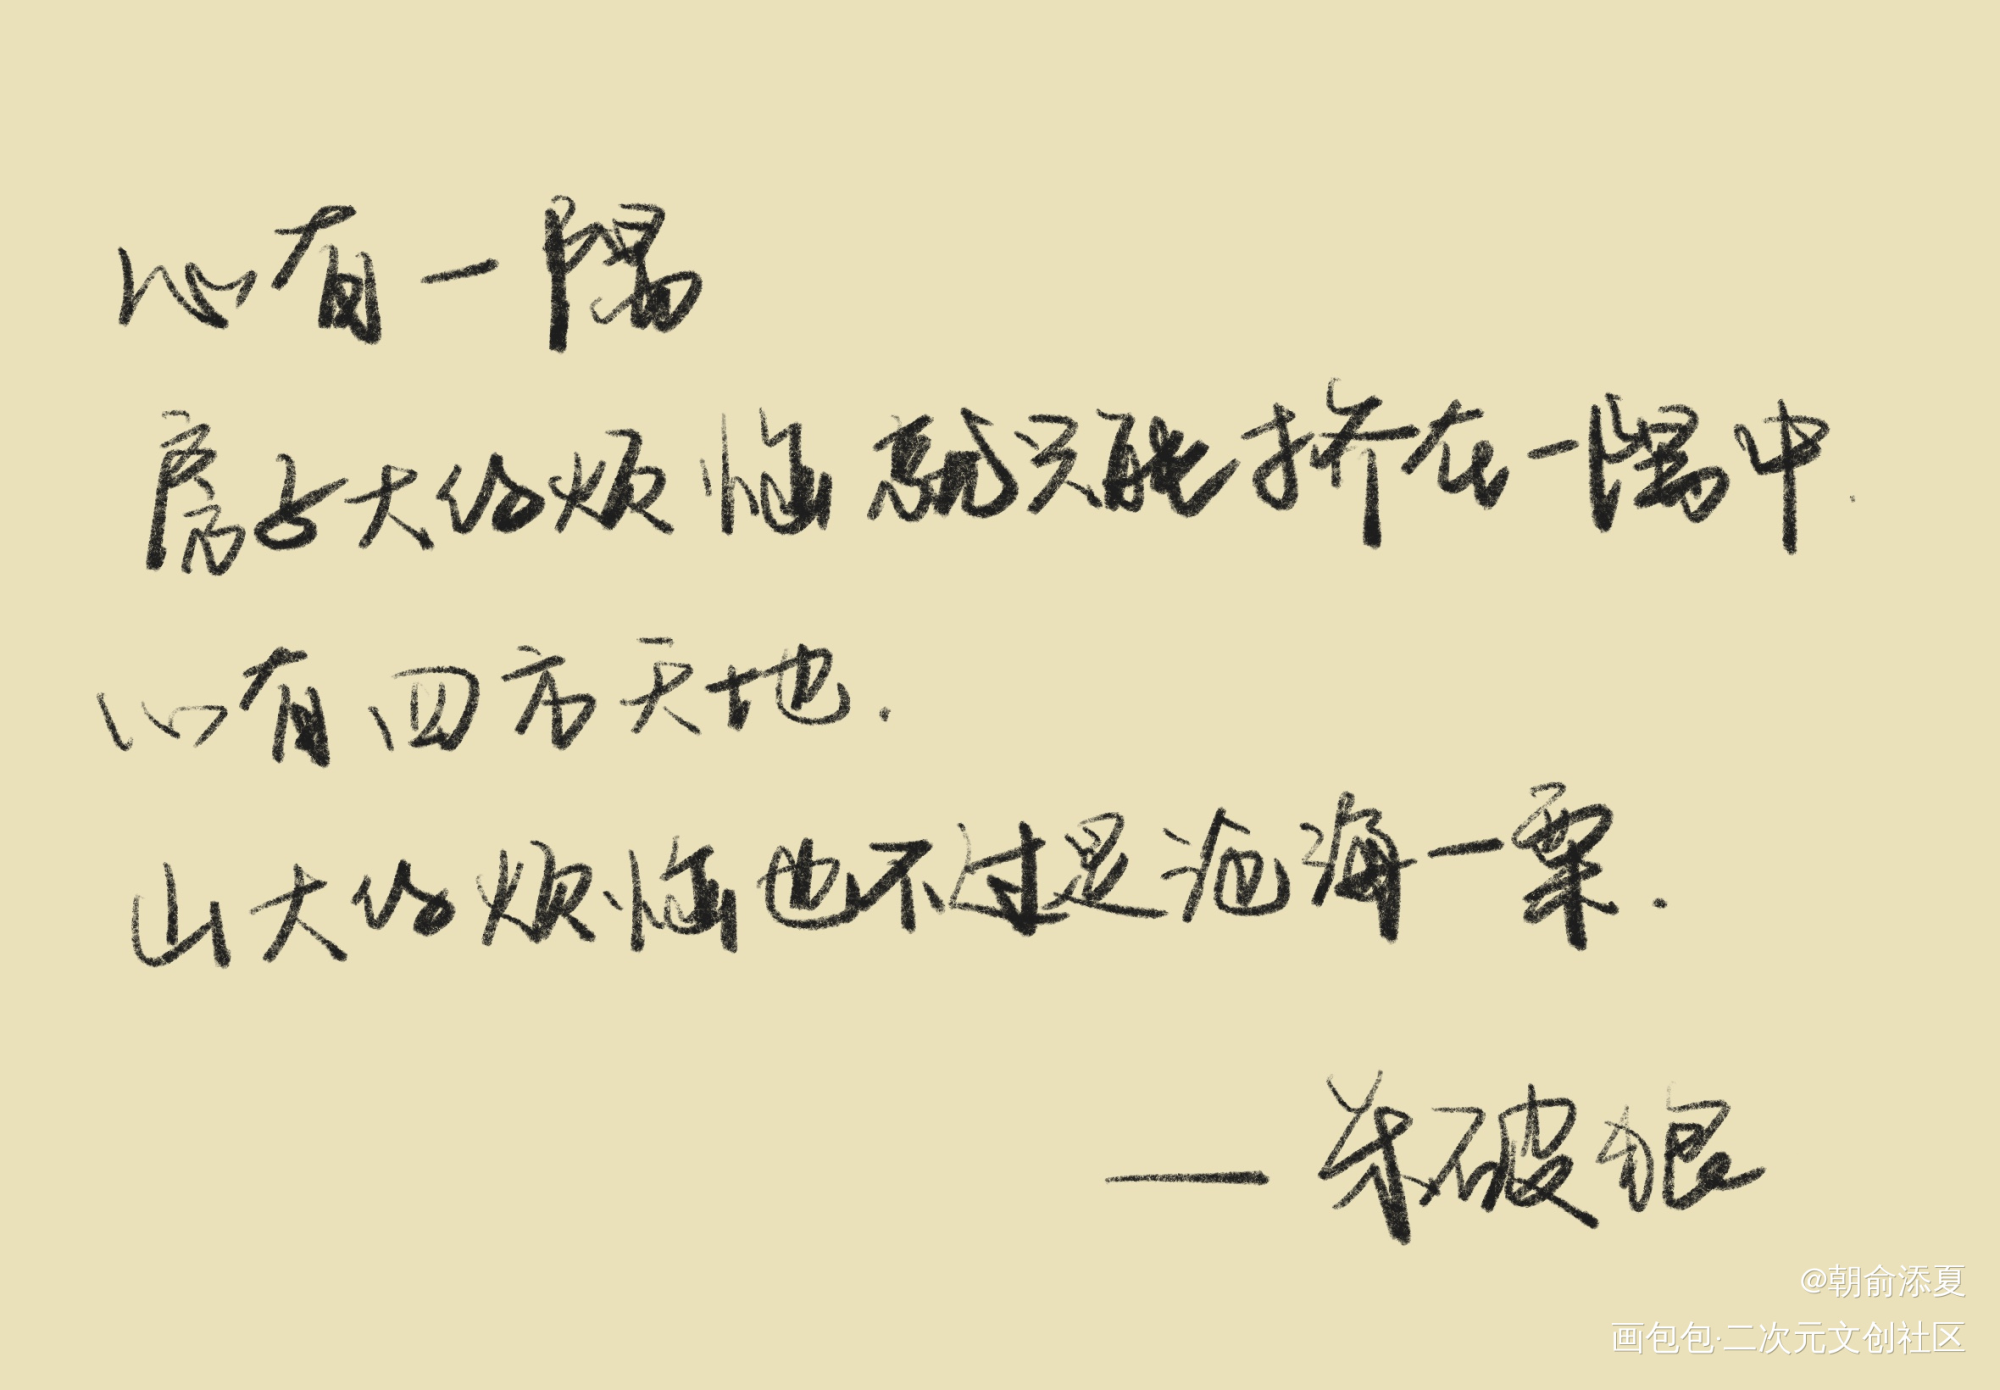 心有一隅
房子大的烦恼就只能挤在一隅中.
心有四方天地.
山大的烦恼也不过是沧海一粟.
—杀破狼
@朝俞添夏
画包包·二次元文创社区